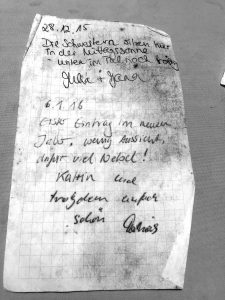 28.12.15
Die Schwestern sitzen hier
in der Mittagssonne
- unten im Tal noch
Julia +
6.1.16
Erster Eintrag im neuen
Jahr, wenig Aussicht,
dafür viel Nebel!
Katrin und
trotzdem
schön